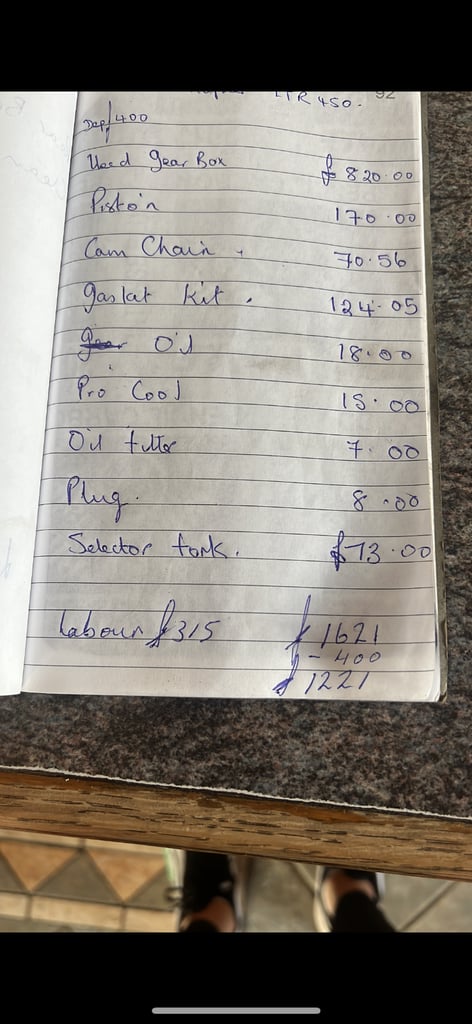 LTR 450. 92
Dep/400
Used gear Box £ 820.00
Piston 170.00
Cam Chain. 70.56
gasket kit. 124.05
gear Oil 18.00
Pro Cool 15.00
Oil filter 7.00
Plug. 8.00
Selector fork. £73.00
Labour £315 £ 1621
- 400
£ 1221